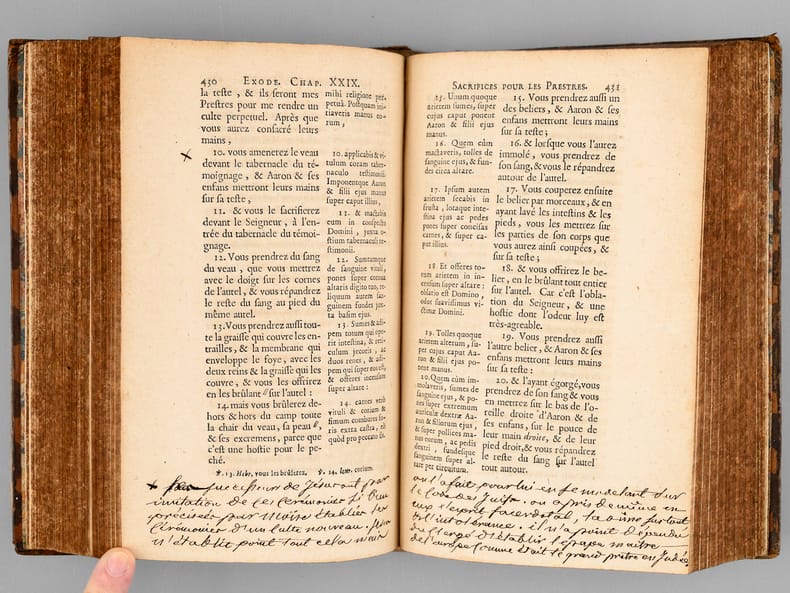 430 EXODE. CHAP. XXIX.
la teste, & ils seront mes
Prestres pour me rendre un
culte perpetuel. Après que
vous aurez consacré leurs
mains,
10. vous amenerez le veau
devant le tabernacle du té-
moignage, & Aaron & ses
enfans mettront leurs mains
sur sa teste,
11. & vous le sacrifierez
devant le Seigneur, à l'en-
trée du tabernacle du témoi-
gnage.
12. Vous prendrez du sang
du veau, que vous mettrez
avec le doigt sur les cornes
de l'autel, & vous répandrez
le reste du sang au pied du
même autel.
13. Vous prendrez aussi tou-
te la graisse qui couvre les en-
trailles, & la membrane qui
enveloppe le foye, avec les
deux reins & la graisse qui les
couvre, & vous les offrirez
en les brûlant sur l'autel:
14. mais vous brûlerez de-
hors & hors du camp toute
la chair du veau, sa peau, &
& ses excremens, parce que
c'est une hostie pour le pe-
ché.
mihi religione per-
petuâ. Postquam ini-
tiaveris manus eo-
rum,
10. applicabis & vi-
tulum coram taber-
naculo testimonii.
Imponentque Aaron
& filii ejus manus
super caput illius,
11. & mactabis
eum in conspectu
Domini, juxta o-
stium tabernaculi te-
stimonii.
12. Sumtumque
de sanguine vituli,
pones super cornua
altaris digito tuo, re-
liquum autem san-
guinem fundes jux-
ta basim ejus.
13. Sumes & adi-
pem totum qui ope-
rit intestina, & reti-
culum jecoris, ac
duos renes, & adi-
pem qui super eos est,
& offeres incensum
super altare:
14. carnes verò
vituli & corium &
fimum combures fo-
ris extra castra, eò
quòd pro peccato sit.
℣. 13. Hebr. vous les brûlerez. ℣. 14. lettr. corium.
successeurs de Jésus ont par
imitation de ces cérémonies si bien
précisées par Moïse établir les
cérémonies d'un culte nouveau. Jésus
n'établit point tout cela mais
SACRIFICES POUR LES PRESTRES. 431
15. Unum quoque
arietem sumes, super
cujus caput ponent
Aaron & filii ejus
manus.
16. Quem cùm
mactaveris, tolles de
sanguine ejus, & fun-
des circa altare.
17. Ipsum autem
arietem secabis in
frusta, lotaque inte-
stina ejus ac pedes
pones super concisas
carnes, & super ca-
put illius.
18. Et offeres to-
tum arietem in in-
censum super altare:
oblatio est Domino,
odor suavissimus vi-
ctimæ Domini.
19. Tolles quoque
arietem alterum, su-
per cujus caput Aa-
ron & filii ejus po-
nent manus.
20. Quem cùm im-
molaveris, sumes de
sanguine ejus, & po-
nes super extremum
auriculæ dextræ Aa-
ron & filiorum ejus,
& super pollices ma-
nus eorum, ac pedis
dextri, fundesque
sanguinem super al-
tare per circuitum.
15. Vous prendrez aussi un
des beliers, & Aaron & ses
enfans mettront leurs mains
sur sa teste;
16. & lorsque vous l'aurez
immolé, vous prendrez de
son sang, & vous le répandrez
autour de l'autel.
17. Vous couperez ensuite
le belier par morceaux, & en
ayant lavé les intestins & les
pieds, vous les mettrez sur
les parties de son corps que
vous aurez ainsi coupées, &
sur sa teste;
18. & vous offrirez le be-
lier, en le brûlant tout entier
sur l'autel. Car c'est l'obla-
tion du Seigneur, & une
hostie dont l'odeur luy est
très-agreable.
19. Vous prendrez aussi
l'autre belier, & Aaron & ses
enfans mettront leurs mains
sur sa teste:
20. & l'ayant égorgé, vous
prendrez de son sang & vous
en mettrez sur le bas de l'o-
reille droite d'Aaron & de
ses enfans, sur le pouce de
leur main droite, & de leur
pied droit, & vous répandrez
le reste du sang sur l'autel
tout autour.
on l'a fait pour lui en se modelant sur
le code des Juifs. on a pris de même en
eux l'esprit sacerdotal, la dîme surtout
& l'intolérance. il n'a point dépendu
du clergé d'établir le pape maître
de l'europe comme était le grand prêtre en Judée